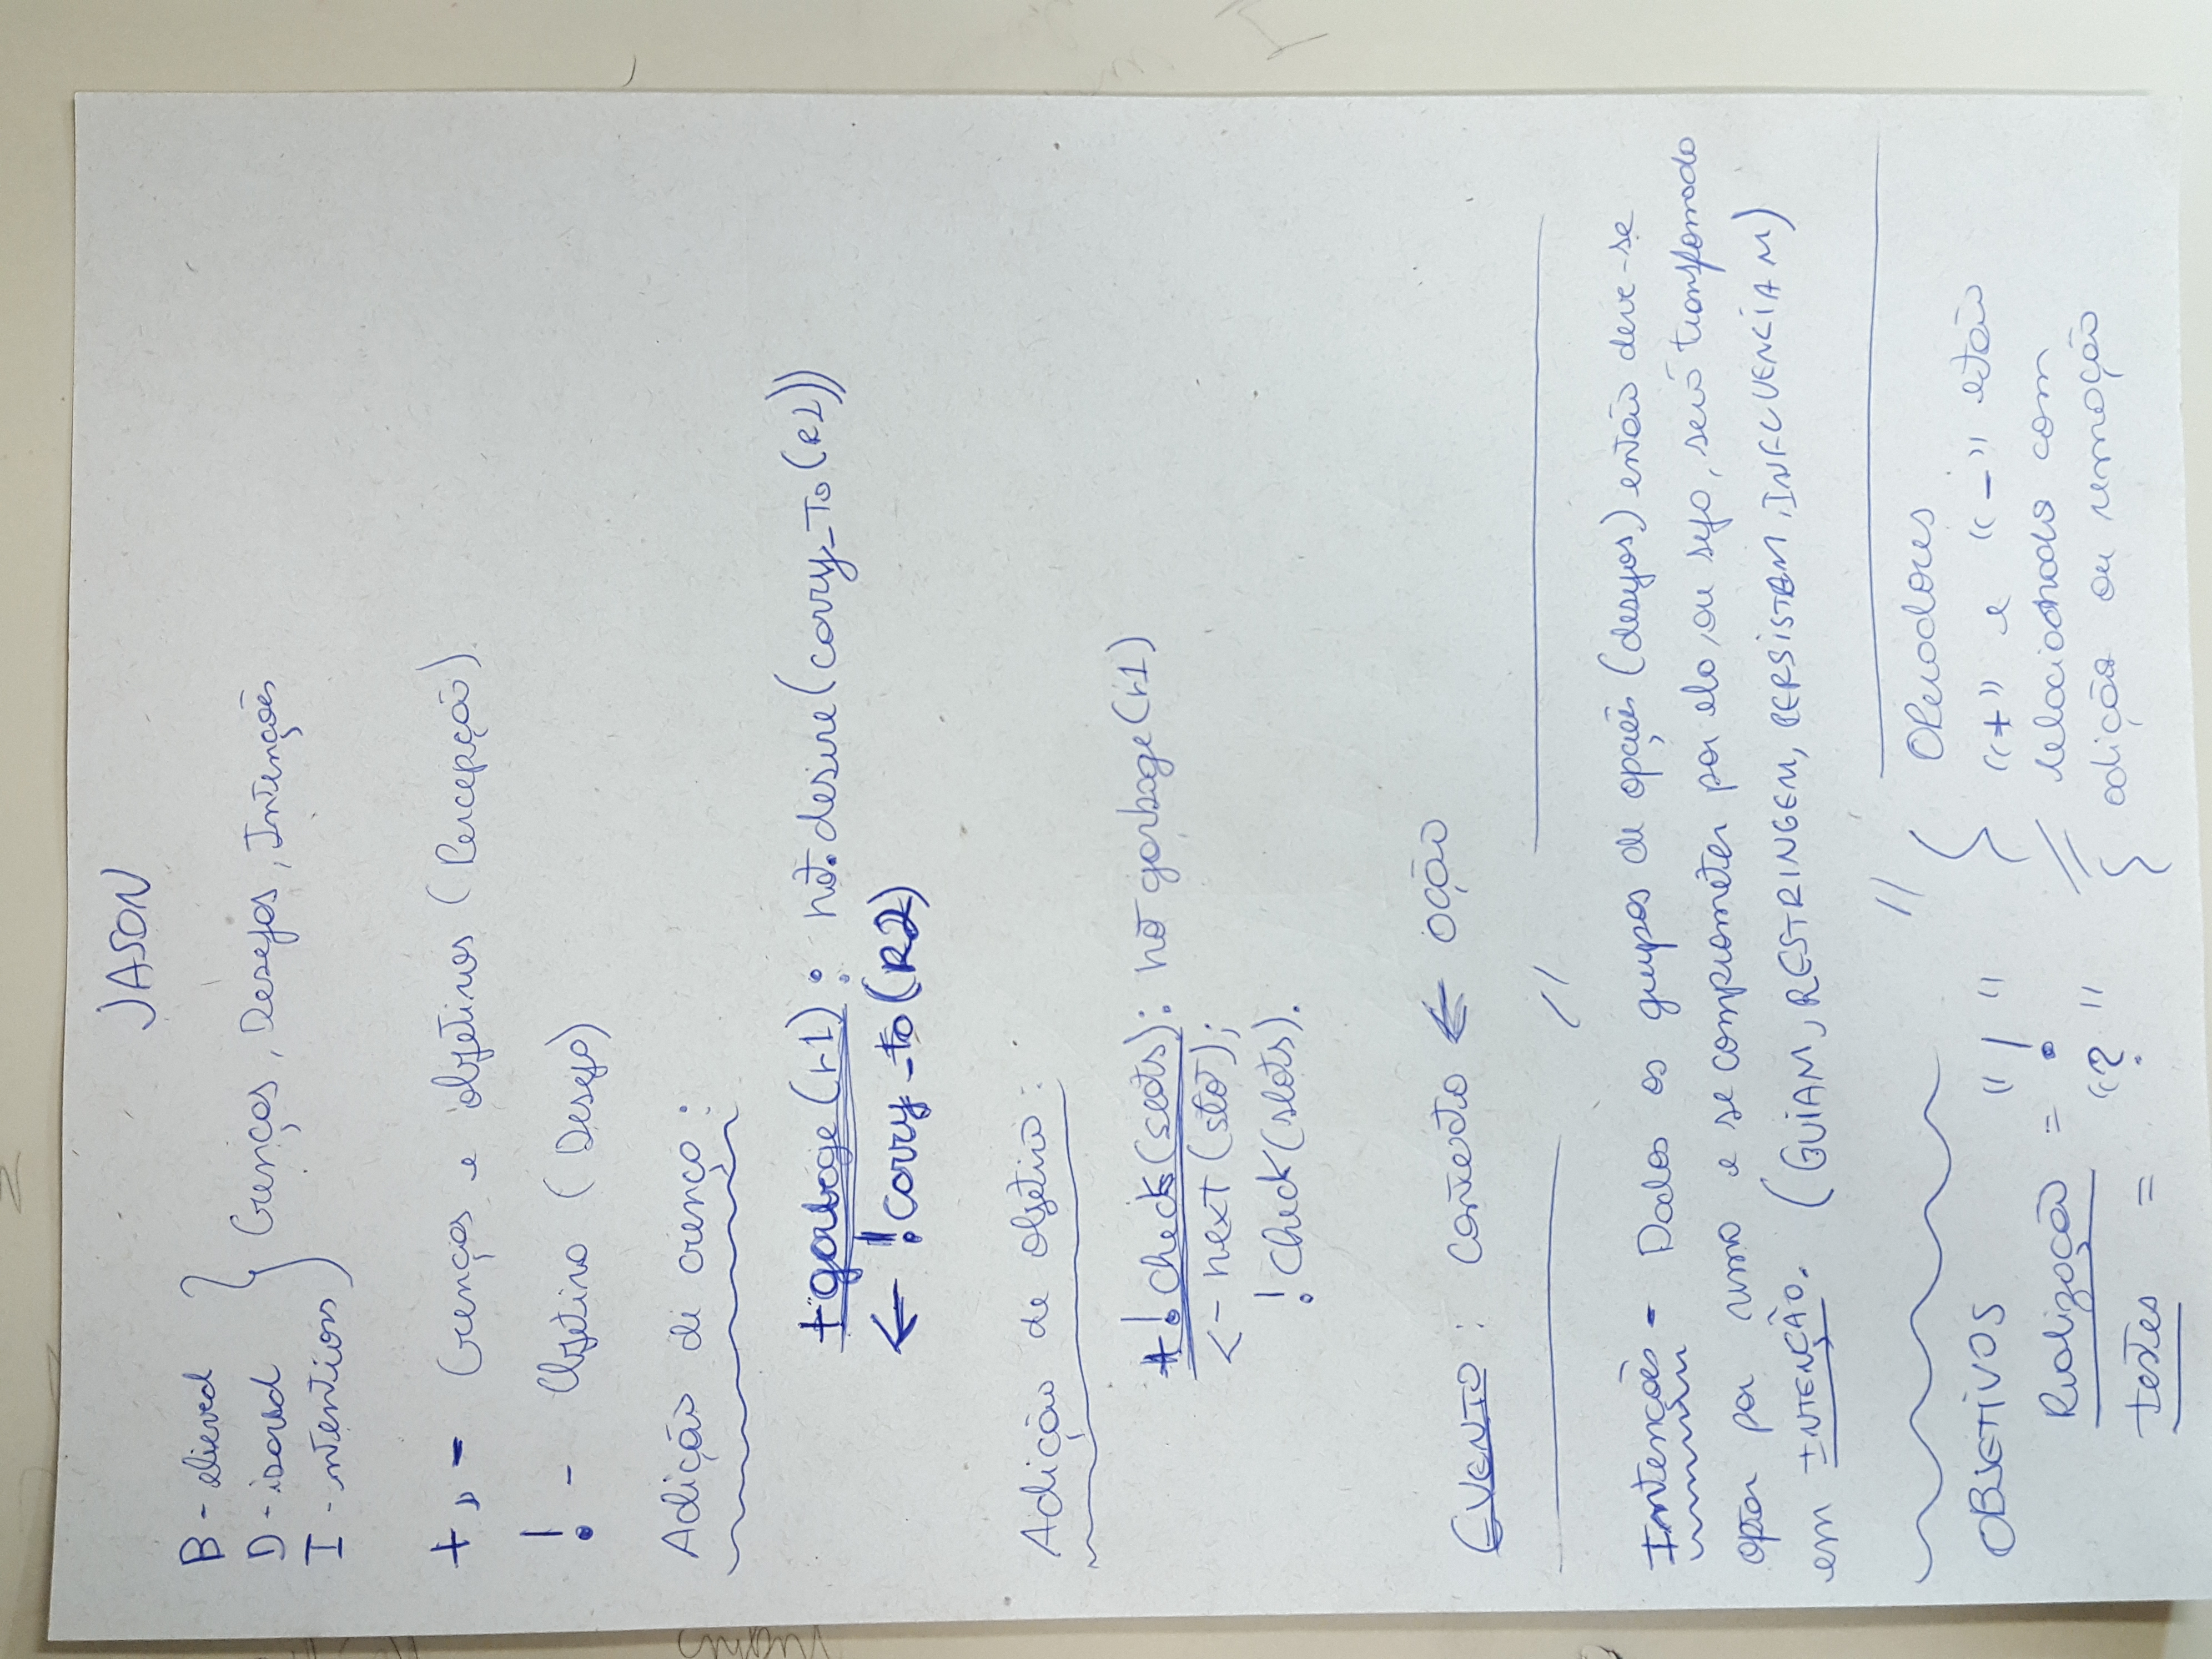 JASON
B - elieved
D - isoud
I - ntentions
Crenças, Desejos, Intenções
+, - Crenças e objetivos (Percepção)
! - Objetivo (Desejo)
Adição de crença:
+garbage(r1): not.desire(carry_to(R2))
← !carry_to(R2)
Adição de objetivo:
+!check(slots): not garbage(r1)
<- next(slot);
!check(slots).
EVENTO: Contexto ← ação
//
Intenções - Dados os grupos de opções (desejos) então deve-se
optar por uma e se comprometer por ela, ou seja, será transformado
em INTENÇÃO. (GUIAM, RESTRINGEM, PERSISTEM, INFLUENCIAM)
//
OBJETIVOS
Realização = "!"
testes = "?"
Operadores
"+" e "-" estão
relacionado com
adição ou remoção